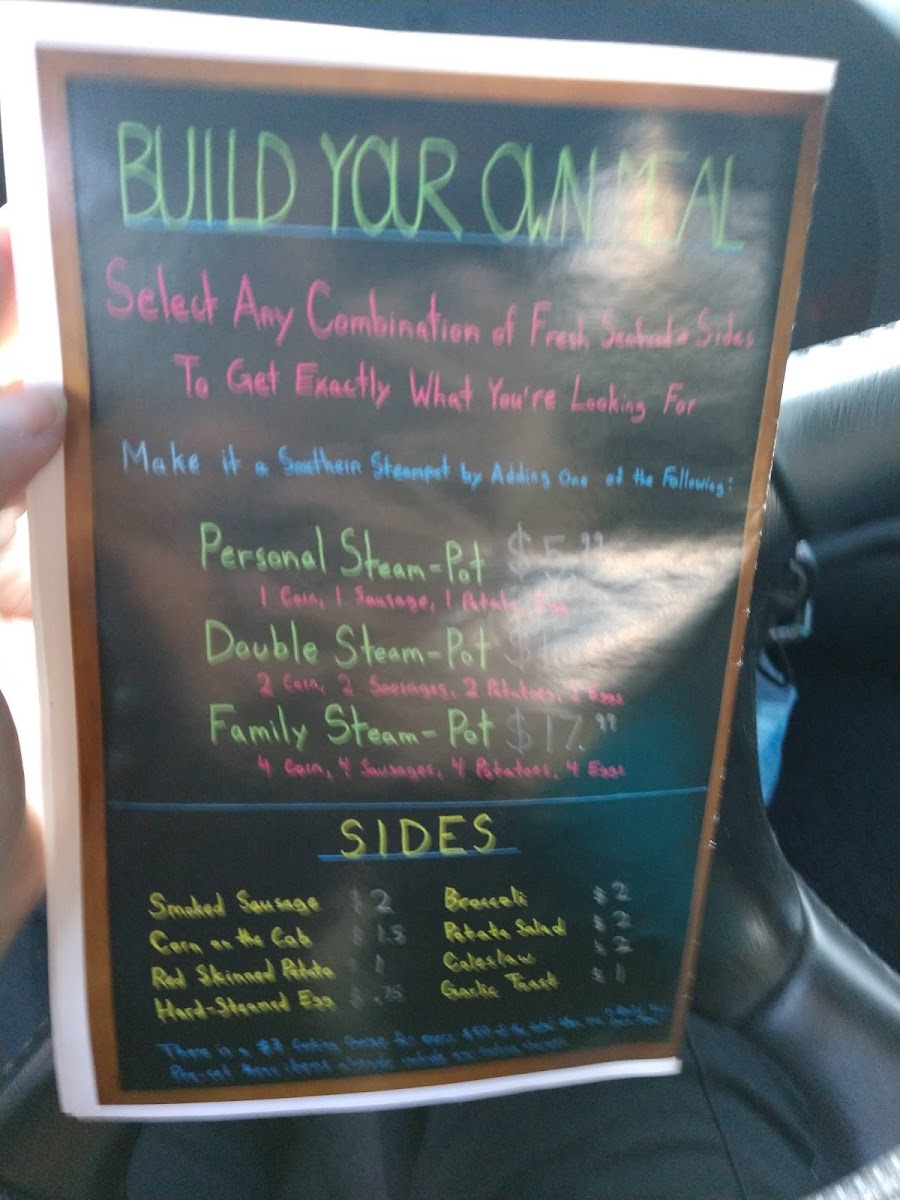 BUILD YOUR OWN MEAL
Select Any Combination of Fresh Seafood & Sides
To Get Exactly What You're Looking For
Make it a Southern Steampot by Adding One of the Following:
Personal Steam-Pot $5.99
1 Corn, 1 Sausage, 1 Potato, Egg
Double Steam-Pot
2 Corn, 2 Sausages, 2 Potatoes, 2 Eggs
Family Steam-Pot $17.99
4 Corn, 4 Sausages, 4 Potatoes, 4 Eggs
SIDES
Smoked Sausage $2 Broccoli $2
Corn on the Cob $1.5 Potato Salad $2
Red Skinned Potato $1 Coleslaw $2
Hard-Steamed Egg $.75 Garlic Toast $1
There is a $3 Cooking Charge for every
Pre-set Menu items already include